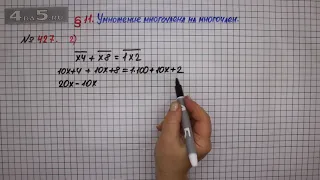 4 5.net
§ 11. Умножение многочлена на многочлен.
№ 427. 2)
x4 + x8 = 1x2
10x+4 + 10x+8 = 1·100+10x+2
20x-10x